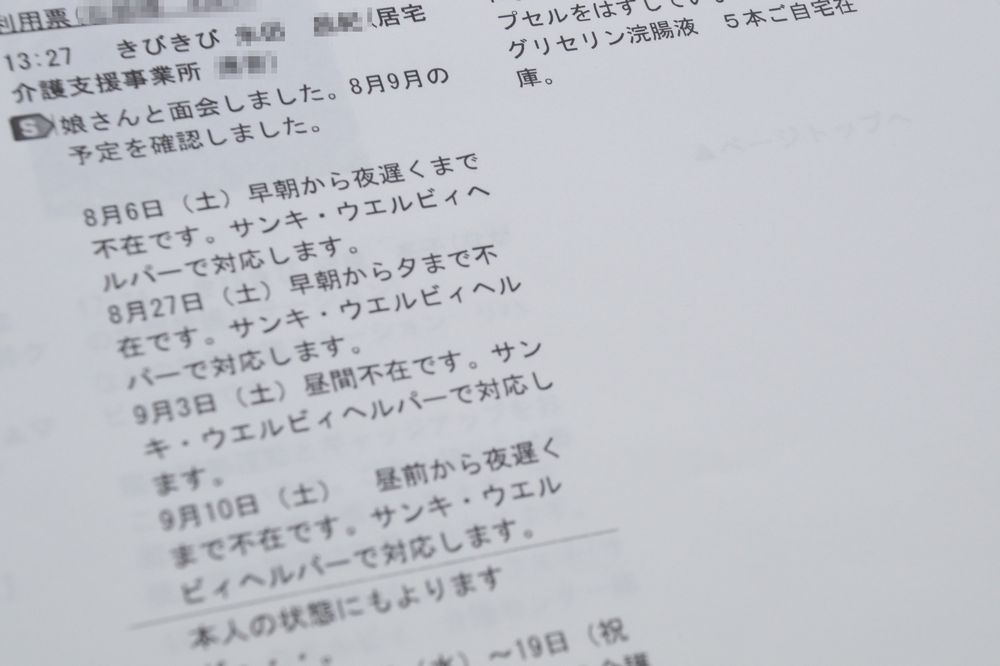 利用票
13:27 きびきび 居宅
介護支援事業所
S 娘さんと面会しました。8月9月の
予定を確認しました。
8月6日（土）早朝から夜遅くまで
不在です。サンキ・ウエルビィヘ
ルパーで対応します。
8月27日（土）早朝から夕まで不
在です。サンキ・ウエルビィヘル
パーで対応します。
9月3日（土）昼間不在です。サン
キ・ウエルビィヘルパーで対応し
ます。
9月10日（土） 昼前から夜遅く
まで不在です。サンキ・ウエル
ビィヘルパーで対応します。
本人の状態にもよります
～19日（祝
プセルをはずしてい
グリセリン浣腸液 ５本ご自宅在
庫。
▲ページトップへ